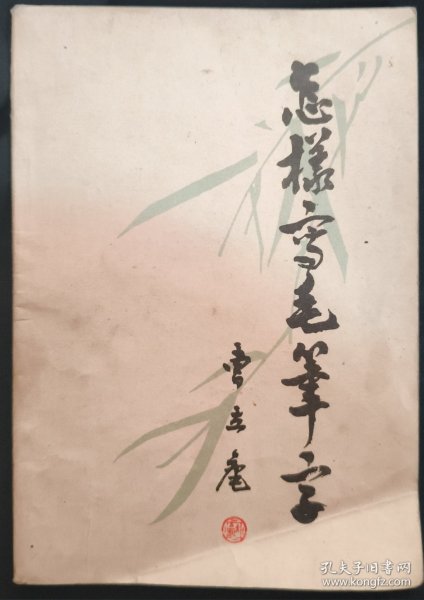 怎樣寫毛筆字
曹立庵
孔夫子旧书网
https://www.kongfz.com